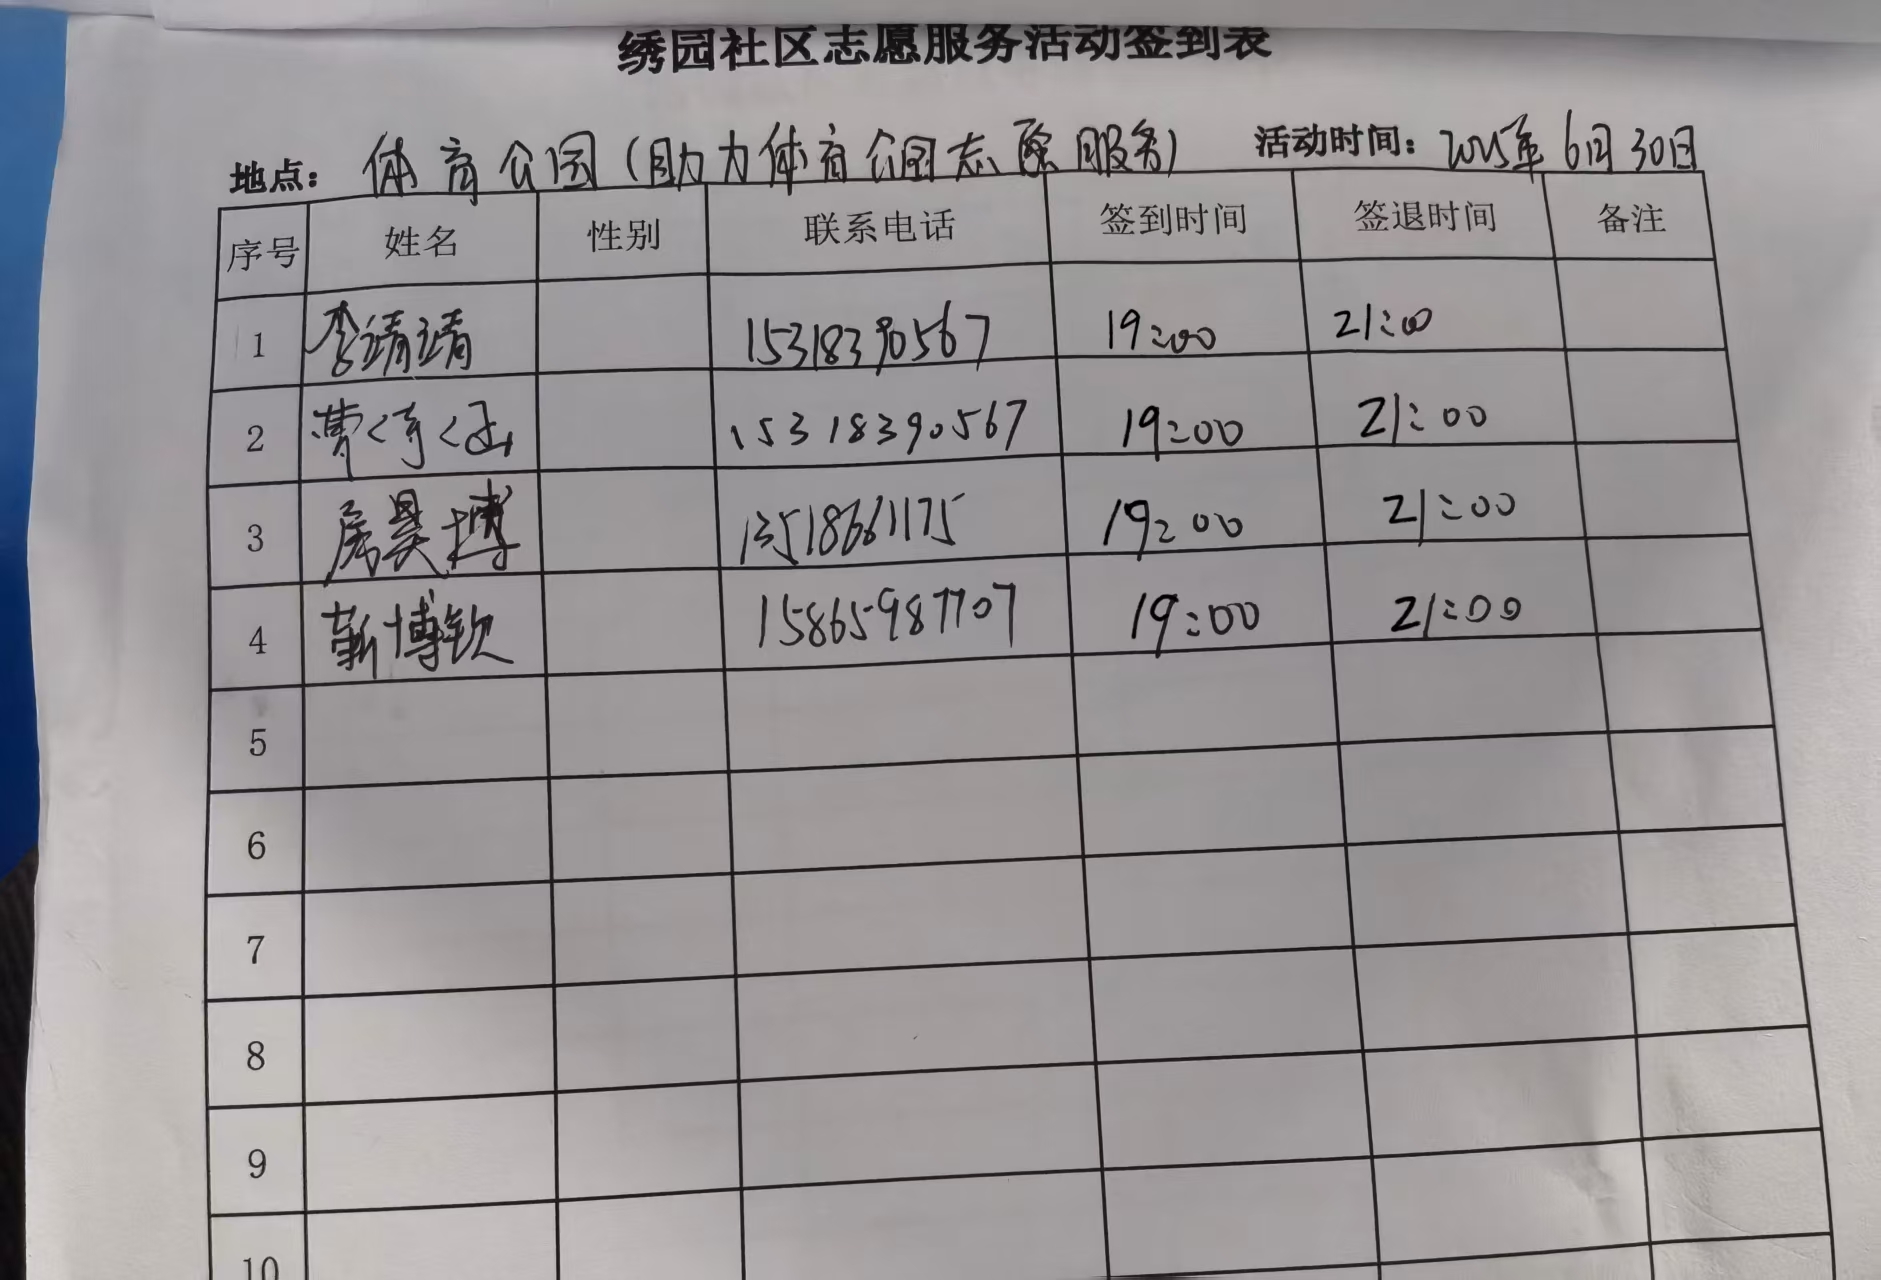 绣园社区志愿服务活动签到表
地点： 体育公园（助力体育公园志愿服务） 活动时间：2025年6月30日
序号 姓名 性别 联系电话 签到时间 签退时间 备注
1 李靖靖 15318390567 19:00 21:00
2 曹 15318390567 19:00 21:00
3 房昊博 13518661175 19:00 21:00
4 靳博钦 15865987707 19:00 21:00
5
6
7
8
9
10